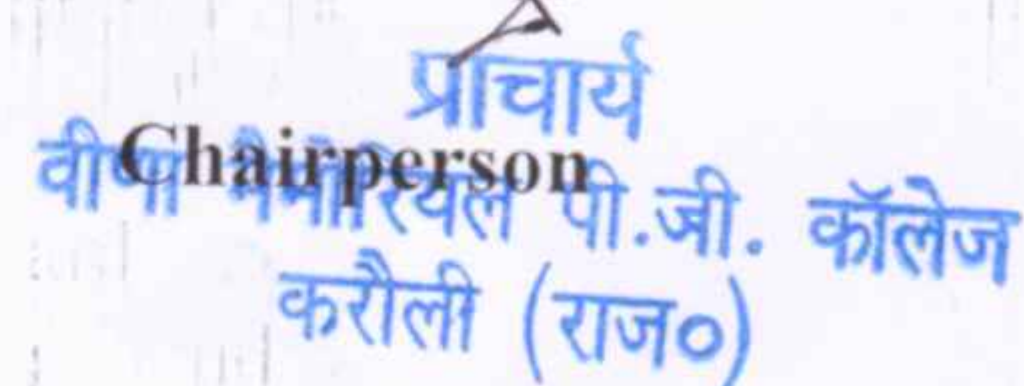 प्राचार्य
Chairperson
वीणा मैमोरियल पी.जी. कॉलेज
करौली (राज०)